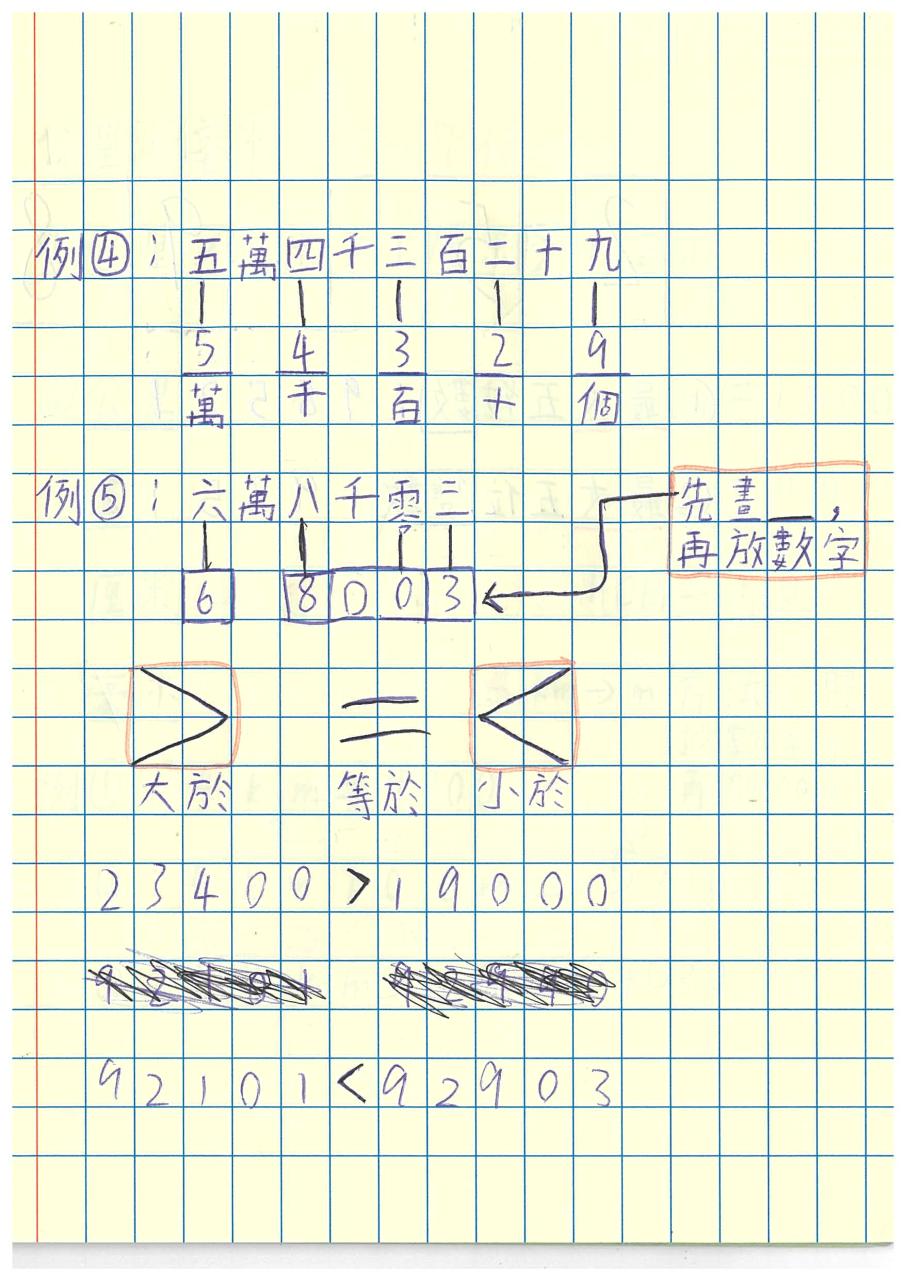 例④：五萬四千三百二十九
5 4 3 2 9
萬 千 百 十 個
例⑤：六萬八千零三
先畫__，
再放數字
6 8 0 0 3
> = <
大於 等於 小於
23400 > 19000
92101 < 92903